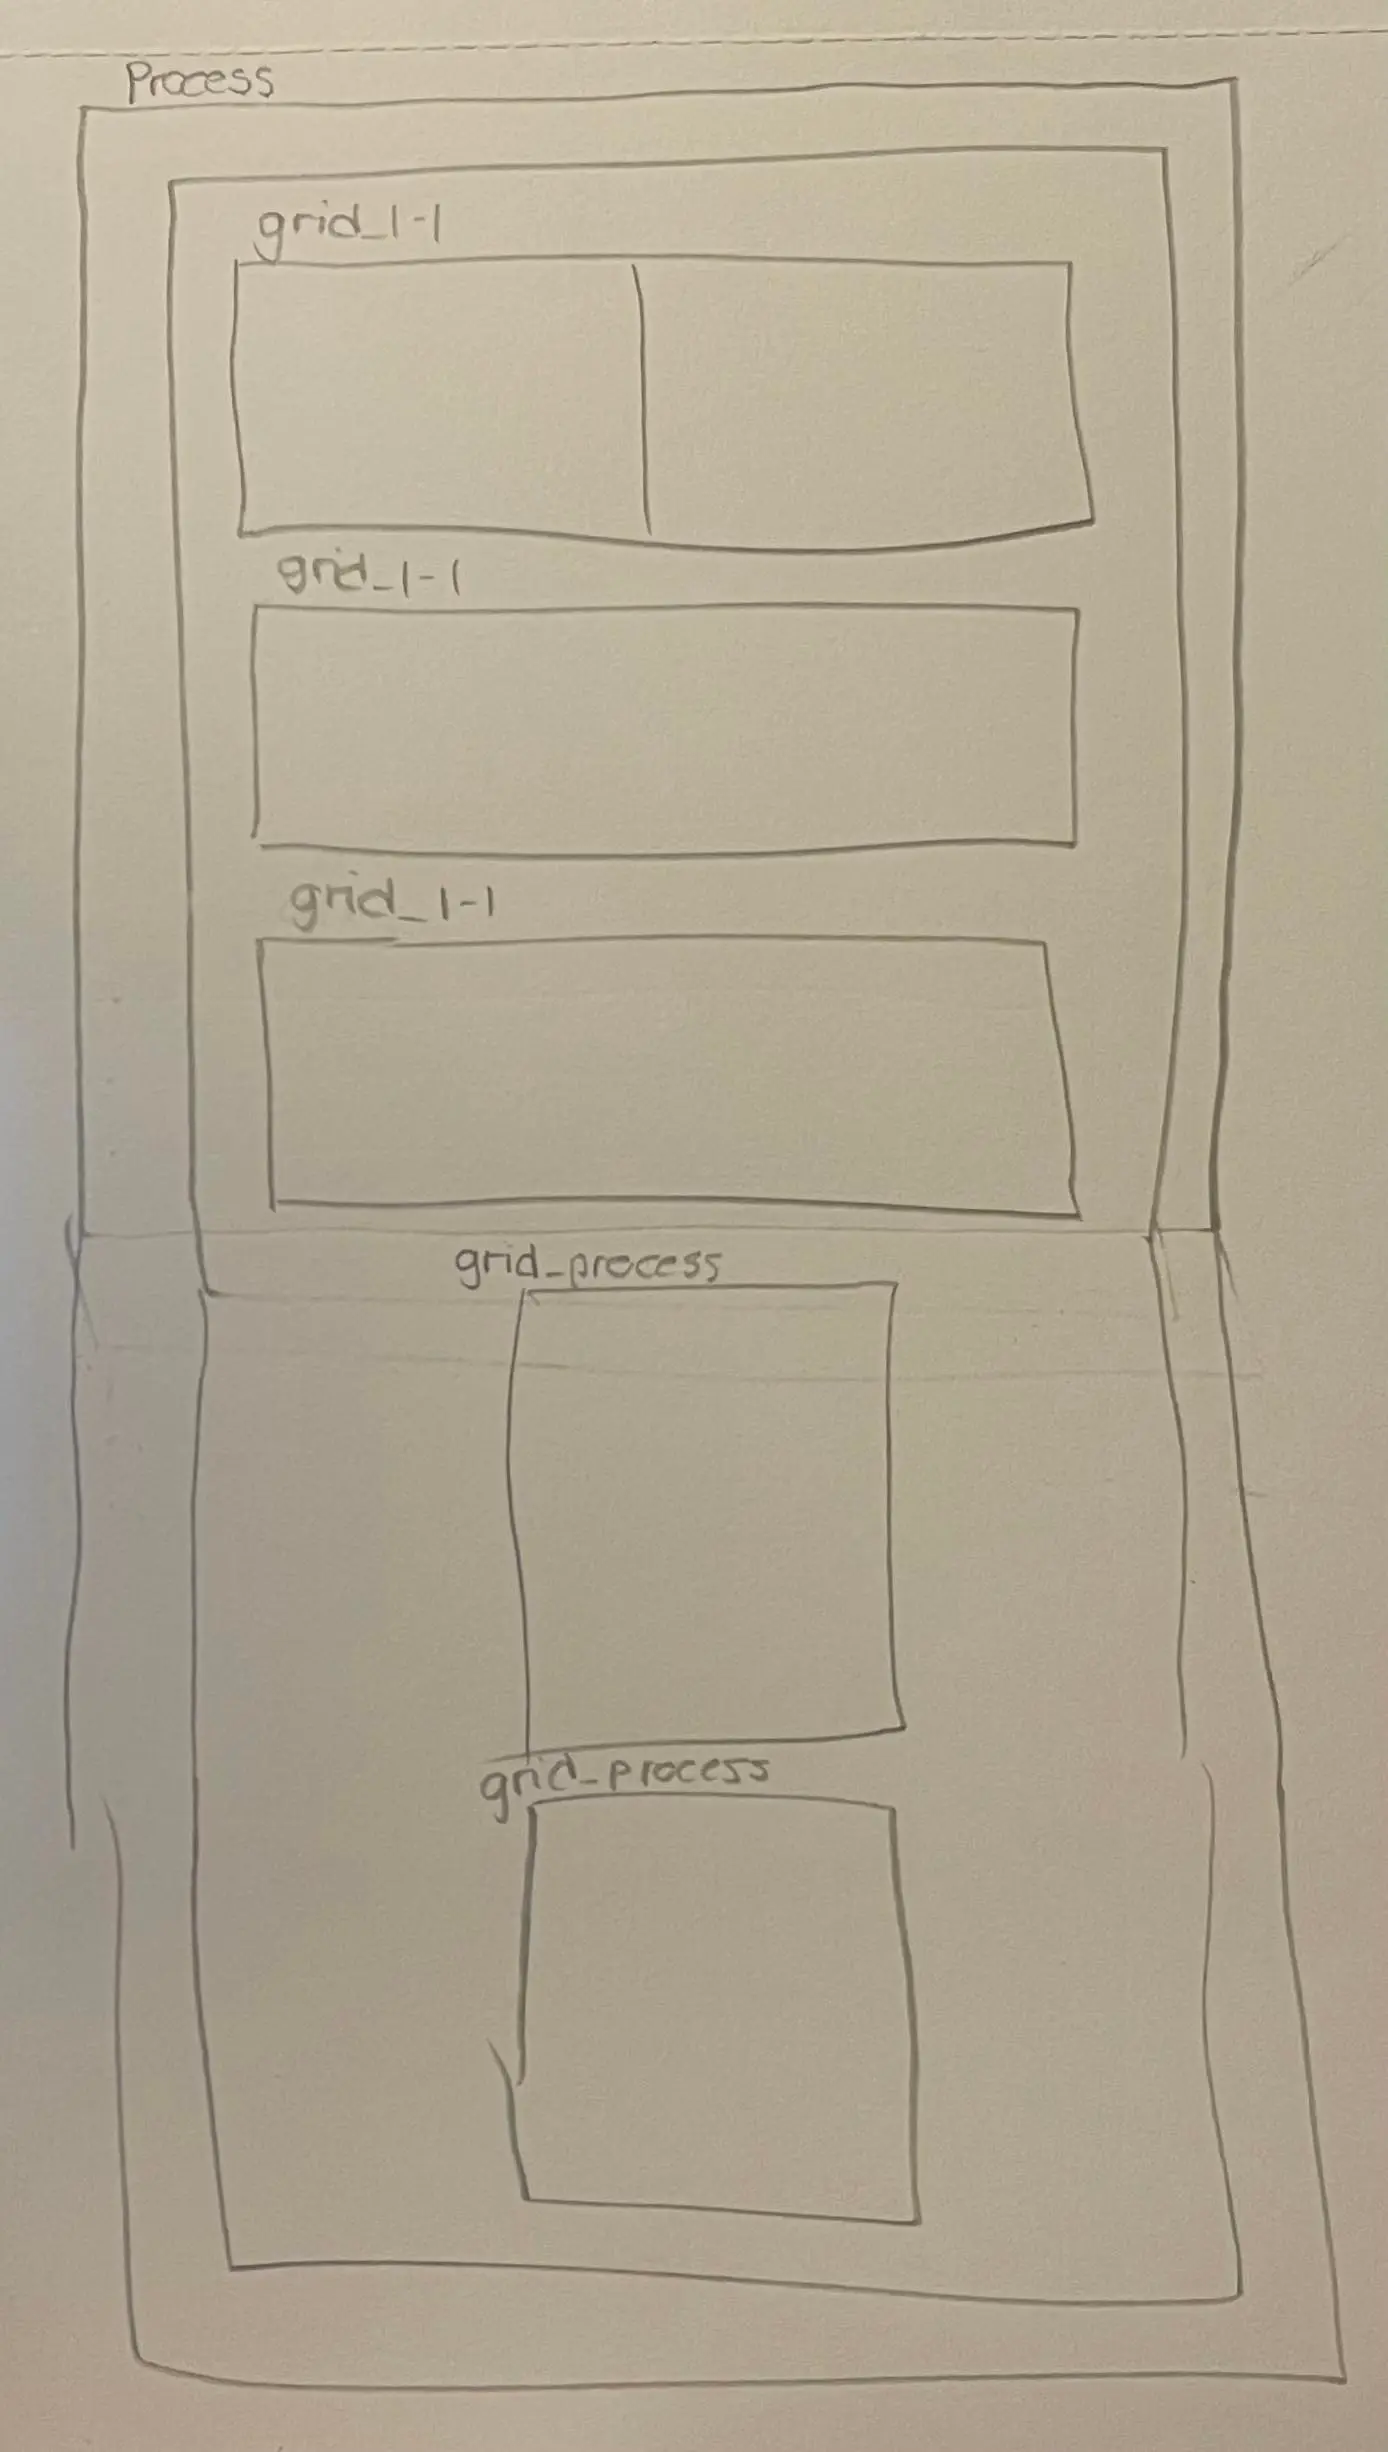 Process
grid_1-1
grid_1-1
grid_1-1
grid_process
grid_process